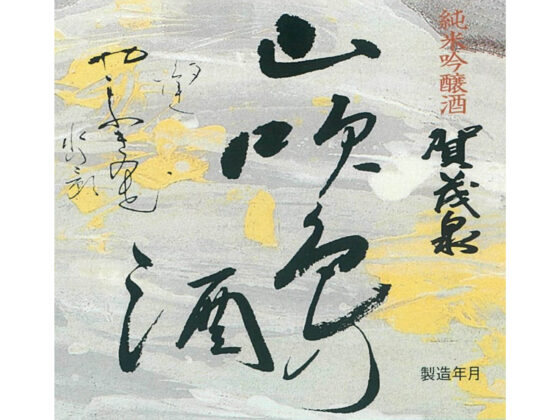 純米吟醸酒
賀茂泉
山吹色
酒
製造年月